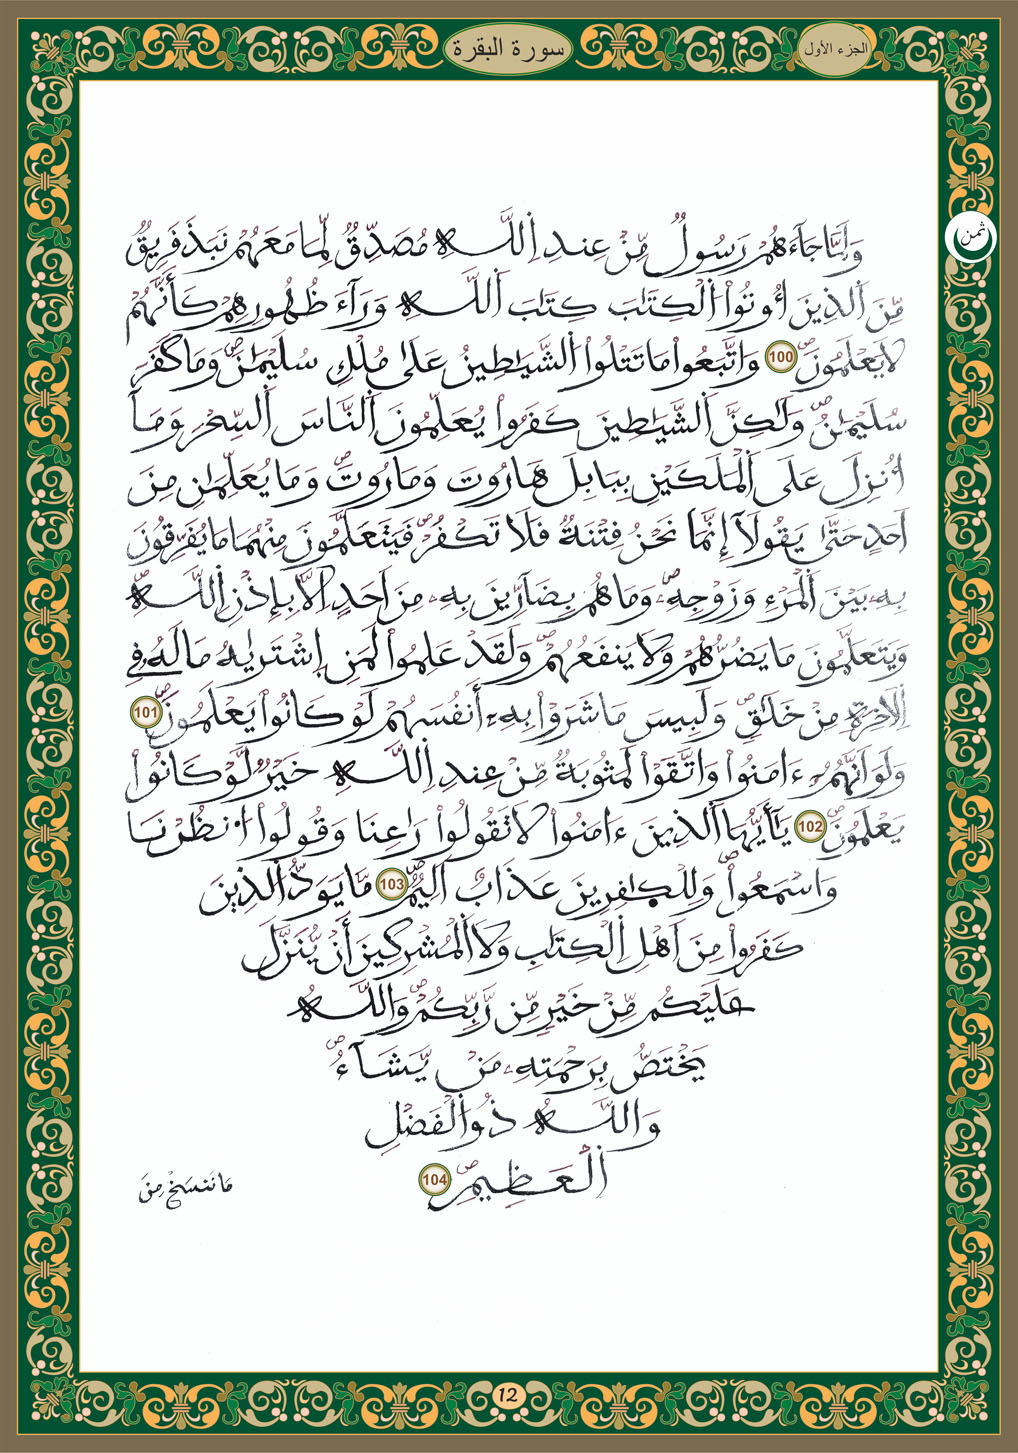 الجزء الأول
سورة البقرة
ثمن
وَلَمَّا جَآءَهُمْ رَسُولٌ مِّنْ عِندِ اِللَّهِ مُصَدِّقٌ لِّمَا مَعَهُمْ نَبَذَ فَرِيقٌ
مِّنَ اَلذِينَ أُوتُواْ اُلْكِتَٰبَ كِتَٰبَ اَللَّهِ وَرَآءَ ظُهُورِهِمْ كَأَنَّهُمْ
لَا يَعْلَمُونَۖ 100 وَاتَّبَعُواْ مَا تَتْلُواْ اُلشَّيَٰطِينُ عَلَىٰ مُلْكِ سُلَيْمَٰنَۖ وَمَا كَفَرَ
سُلَيْمَٰنُۖ وَلَٰكِنَّ اَلشَّيَٰطِينَ كَفَرُواْ يُعَلِّمُونَ اَلنَّاسَ اَلسِّحْرَ وَمَآ
أُنزِلَ عَلَى اَلْمَلَكَيْنِ بِبَابِلَ هَٰرُوتَ وَمَٰرُوتَۖ وَمَا يُعَلِّمَٰنِ مِنَ
اَحَدٍ حَتَّىٰ يَقُولَآ إِنَّمَا نَحْنُ فِتْنَةٌ فَلَا تَكْفُرْۖ فَيَتَعَلَّمُونَ مِنْهُمَا مَا يُفَرِّقُونَ
بِهِۦ بَيْنَ اَلْمَرْءِ وَزَوْجِهِۦۖ وَمَا هُم بِضَآرِّينَ بِهِۦ مِنَ اَحَدٍ اِلَّا بِإِذْنِ اِللَّهِۖ
وَيَتَعَلَّمُونَ مَا يَضُرُّهُمْ وَلَا يَنفَعُهُمْۖ وَلَقَدْ عَلِمُواْ لَمَنِ اِشْتَرَىٰهُ مَا لَهُۥ فِي
اِلَاخِرَةِ مِنْ خَلَٰقٍۖ وَلَبِيسَ مَا شَرَوْاْ بِهِۦٓ أَنفُسَهُمْ لَوْ كَانُواْ يَعْلَمُونَۖ 101
وَلَوَ اَنَّهُمُۥٓ ءَامَنُواْ وَاتَّقَوْاْ لَمَثُوبَةٌ مِّنْ عِندِ اِللَّهِ خَيْرٌ لَّوْ كَانُواْ
يَعْلَمُونَۖ 102 يَٰٓأَيُّهَا اَلذِينَ ءَامَنُواْ لَا تَقُولُواْ رَٰعِنَا وَقُولُواْ اُنظُرْنَا
وَاسْمَعُواْۖ وَلِلْكٰ۪فِرِينَ عَذَابٌ اَلِيمٌۖ 103 مَّا يَوَدُّ اُلذِينَ
كَفَرُواْ مِنَ اَهْلِ اِلْكِتَٰبِ وَلَا اَلْمُشْرِكِينَ أَنْ يُّنَزَّلَ
عَلَيْكُم مِّنْ خَيْرٍ مِّن رَّبِّكُمْۖ وَاللَّهُ
يَخْتَصُّ بِرَحْمَتِهِۦ مَنْ يَّشَآءُۖ
وَاللَّهُ ذُو اُلْفَضْلِ
اِلْعَظِيمِۖ 104
مَا نَنسَخْ مِنَ
12